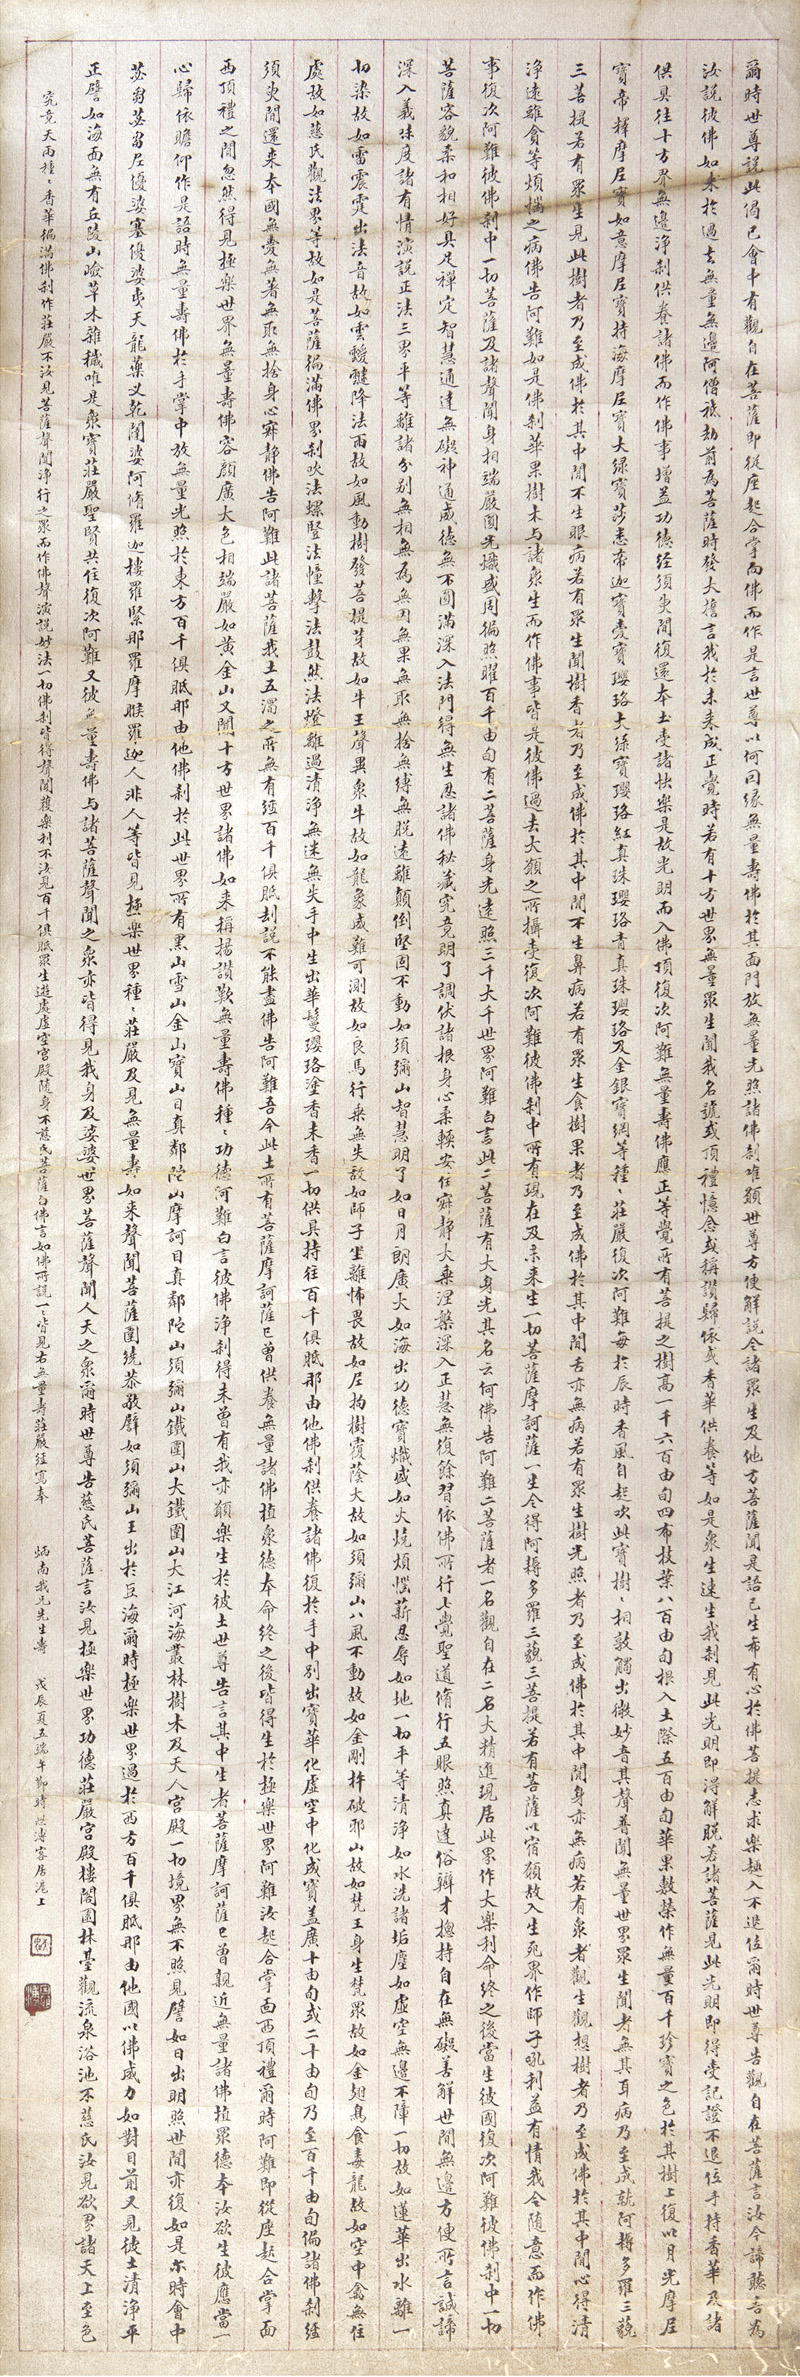 爾時世尊說此偈已會中有觀自在菩薩即從座起合掌向佛而作是言世尊以何因緣無量壽佛於其面門放無量光照諸佛刹唯願世尊方便解說令諸眾生及他方菩薩聞是語已生希有心於佛菩提志求樂趣入不退位爾時世尊告觀自在菩薩言汝今諦聽吾為
汝說彼佛如來於過去無量無邊阿僧祇劫前為菩薩時發大誓言我於未來成正覺時若有十方世界無量眾生聞我名號或頂禮憶念或稱讚歸依或香華供養等如是眾生速生我刹見此光明即得解脫若諸菩薩見此光明即得受記證不退位手持香華及諸
供具往十方界無邊淨刹供養諸佛而作佛事增益功德經須臾間復還本土受諸快樂是故光明而入佛頂復次阿難無量壽佛應正等覺所有菩提之樹高一千六百由旬四布枝葉八百由旬根入土際五百由旬華果敷榮作無量百千珍寶之色於其樹上復以月光摩尼
寶帝釋摩尼寶如意摩尼寶持海摩尼寶大綠寶莎悉帝迦寶愛寶瓔珞大綠寶瓔珞紅真珠瓔珞青真珠瓔珞及金銀寶網等種〻莊嚴復次阿難每於辰時香風自起吹此寶樹〻相敦觸出微妙音其聲普聞無量世界眾生聞者無其耳病乃至成就阿耨多羅三藐
三菩提若有眾生見此樹者乃至成佛於其中間不生眼病若有眾生聞樹香者乃至成佛於其中間不生鼻病若有眾生食樹果者乃至成佛於其中間舌亦無病若有眾生樹光照者乃至成佛於其中間身亦無病若有眾生觀想樹者乃至成佛於其中間心得清
淨遠離貪等煩惱之病佛告阿難如是佛刹華果樹木与諸眾生而作佛事皆是彼佛過去大願之所攝受復次阿難彼佛刹中所有現在及未來生一切菩薩摩訶薩一生令得阿耨多羅三藐三菩提若有菩薩以宿願故入生死界作師子吼利益有情我令隨意而作佛
事復次阿難彼佛刹中一切菩薩及諸聲聞身相端嚴圓光熾盛周徧照曜百千由旬有二菩薩身光遠照三千大千世界阿難白言此二菩薩有大身光其名云何佛告阿難二菩薩者一名觀自在二名大精進現居此界作大樂利命終之後當生彼國復次阿難彼佛刹中一切
菩薩容貌柔和相好具足禪定智慧通達無礙神通威德無不圓滿深入法門得無生忍諸佛秘藏究竟明了調伏諸根身心柔輭安住寂靜大乘涅槃深入正慧無復餘習依佛所行七覺聖道脩行五眼照真達俗辯才摠持自在無礙善解世間無邊方便所言誠諦
深入義味度諸有情演說正法三界平等離諸分別無相無為無因無果無取無捨無縛無脫遠離顛倒堅固不動如須彌山智慧明了如日月朗廣大如海出功德寶熾盛如火燒煩惱薪忍辱如地一切平等清淨如水洗諸垢塵如虛空無邊不障一切故如蓮華出水離一
切染故如雷震霆出法音故如雲靉靆降法雨故如風動樹發菩提芽故如牛王聲異眾牛故如龍象威難可測故如良馬行乘無失故如師子坐離怖畏故如尼拘樹覆蔭大故如須彌山八風不動故如金剛杵破邪山故如梵王身生梵眾故如金翅鳥食毒龍故如空中禽無住
處故如慈氏觀法界等故如是菩薩徧滿佛界刹吹法螺豎法幢擊法鼓然法燈離過清淨無迷無失手中生出華鬘瓔珞塗香末香一切供具持往百千俱胝那由他佛刹供養諸佛復於手中別出寶華化虛空中化成寶蓋廣十由旬或二十由旬乃至百千由旬徧諸佛刹經
須臾間還來本國無愛無著無取無捨身心寂靜佛告阿難此諸菩薩我土五濁之所無有經百千俱胝劫說不能盡佛告阿難吾今此土所有菩薩摩訶薩已曾供養無量諸佛植眾德本命終之後皆得生於極樂世界阿難汝起合掌面西頂禮爾時阿難即從座起合掌面
西頂禮之間忽然得見極樂世界無量壽佛容顏廣大色相端嚴如黃金山又聞十方世界諸佛如來稱揚讚歎無量壽佛種〻功德阿難白言彼佛淨刹得未曾有我亦願樂生於彼土世尊告言其中生者菩薩摩訶薩已曾親近無量諸佛植眾德本汝欲生彼應當一
心歸依瞻仰作是語時無量壽佛於手掌中放無量光照於東方百千俱胝那由他佛刹於此世界所有黑山雪山金山寶山目真鄰陀山摩訶目真鄰陀山須彌山鐵圍山大鐵圍山大江河海叢林樹木及天人宮殿一切境界無不照見譬如日出明照世間亦復如是尒時會中
苾芻苾芻尼優婆塞優婆夷天龍藥叉乾闥婆阿脩羅迦樓羅緊那羅摩睺羅迦人非人等皆見極樂世界種〻莊嚴及見無量壽如來聲聞菩薩圍繞恭敬譬如須彌山王出於巨海爾時極樂世界過於西方百千俱胝那由他國以佛威力如對目前又見彼土清淨平
正譬如海面無有丘陵山嶮草木雜穢唯是眾寶莊嚴聖賢共住復次阿難又彼無量壽佛与諸菩薩聲聞之眾亦皆得見我身及娑婆世界菩薩聲聞人天之眾爾時世尊告慈氏菩薩言汝見極樂世界功德莊嚴宮殿樓閣園林臺觀流泉浴池不慈氏汝見欲界諸天上至色
究竟天雨種〻香華徧滿佛刹作莊嚴不汝見菩薩聲聞淨行之眾而作佛聲演說妙法一切佛刹皆得聲聞獲樂利不汝見百千俱胝眾生遊處虛空宮殿隨身不慈氏菩薩白佛言如佛所說一〻皆見右無量壽莊嚴經寫奉
炳南我兄先生壽 戊辰夏五端午鄞時 客居滬上